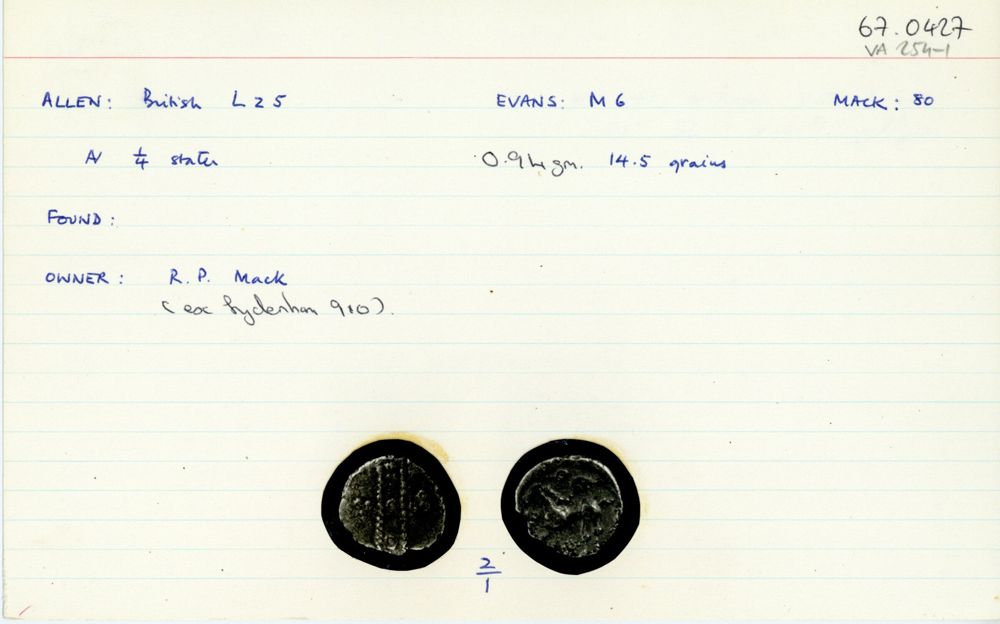 67.0427
VA 254-1
ALLEN: British L Z 5 EVANS: M 6 MACK: 80
N 1/4 stater 0.94 gm. 14.5 grains
FOUND:
OWNER: R. P. Mack
(ex Lydenham 910).
2/1